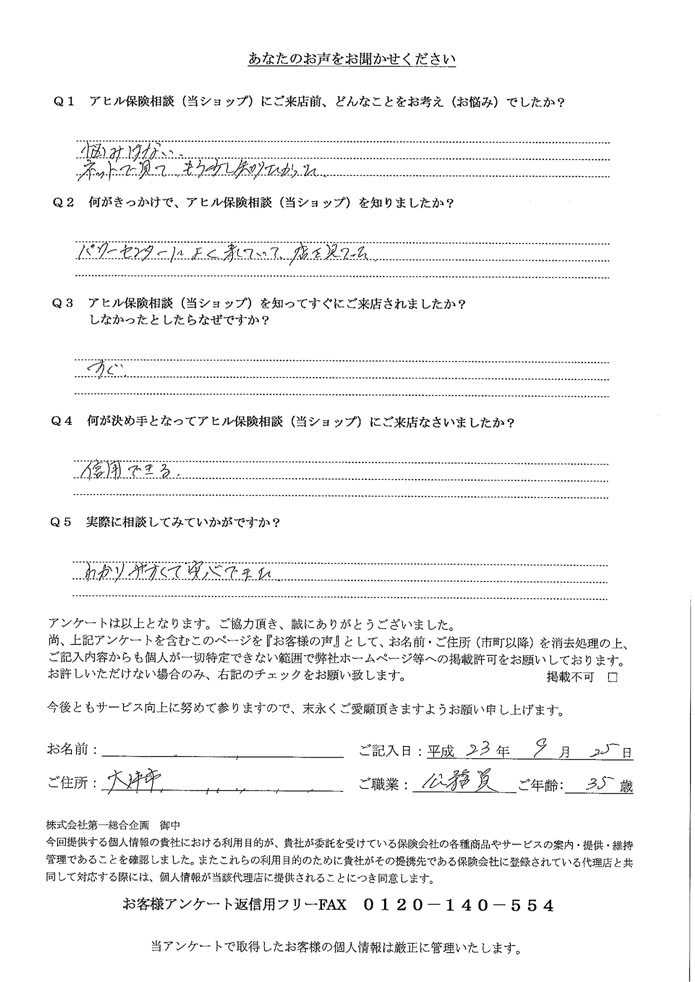 あなたのお声をお聞かせください
Q1 アヒル保険相談（当ショップ）にご来店前、どんなことをお考え（お悩み）でしたか？
悩みはない、
ネットで見て もう少し知りたかった
Q2 何がきっかけで、アヒル保険相談（当ショップ）を知りましたか？
パワーセンターによく来ていて、店を見てた
Q3 アヒル保険相談（当ショップ）を知ってすぐにご来店されましたか？
しなかったとしたらなぜですか？
すぐ、
Q4 何が決め手となってアヒル保険相談（当ショップ）にご来店なさいましたか？
信用できる、
Q5 実際に相談してみていかがですか？
わかりやすくて安心できた
アンケートは以上となります。ご協力頂き、誠にありがとうございました。
尚、上記アンケートを含むこのページを『お客様の声』として、お名前・ご住所（市町以降）を消去処理の上、
ご記入内容からも個人が一切特定できない範囲で弊社ホームページ等への掲載許可をお願いしております。
お許しいただけない場合のみ、右記のチェックをお願い致します。 掲載不可 □
今後ともサービス向上に努めて参りますので、末永くご愛顧頂きますようお願い申し上げます。
お名前： ご記入日：平成 23年 9月 25日
ご住所： 大津市 ご職業： 公務員 ご年齢： 35歳
株式会社第一総合企画 御中
今回提供する個人情報の貴社における利用目的が、貴社が委託を受けている保険会社の各種商品やサービスの案内・提供・維持
管理であることを確認しました。またこれらの利用目的のために貴社がその提携先である保険会社に登録されている代理店と共
同して対応する際には、個人情報が当該代理店に提供されることにつき同意します。
お客様アンケート返信用フリーFAX 0120－140－554
当アンケートで取得したお客様の個人情報は厳正に管理いたします。